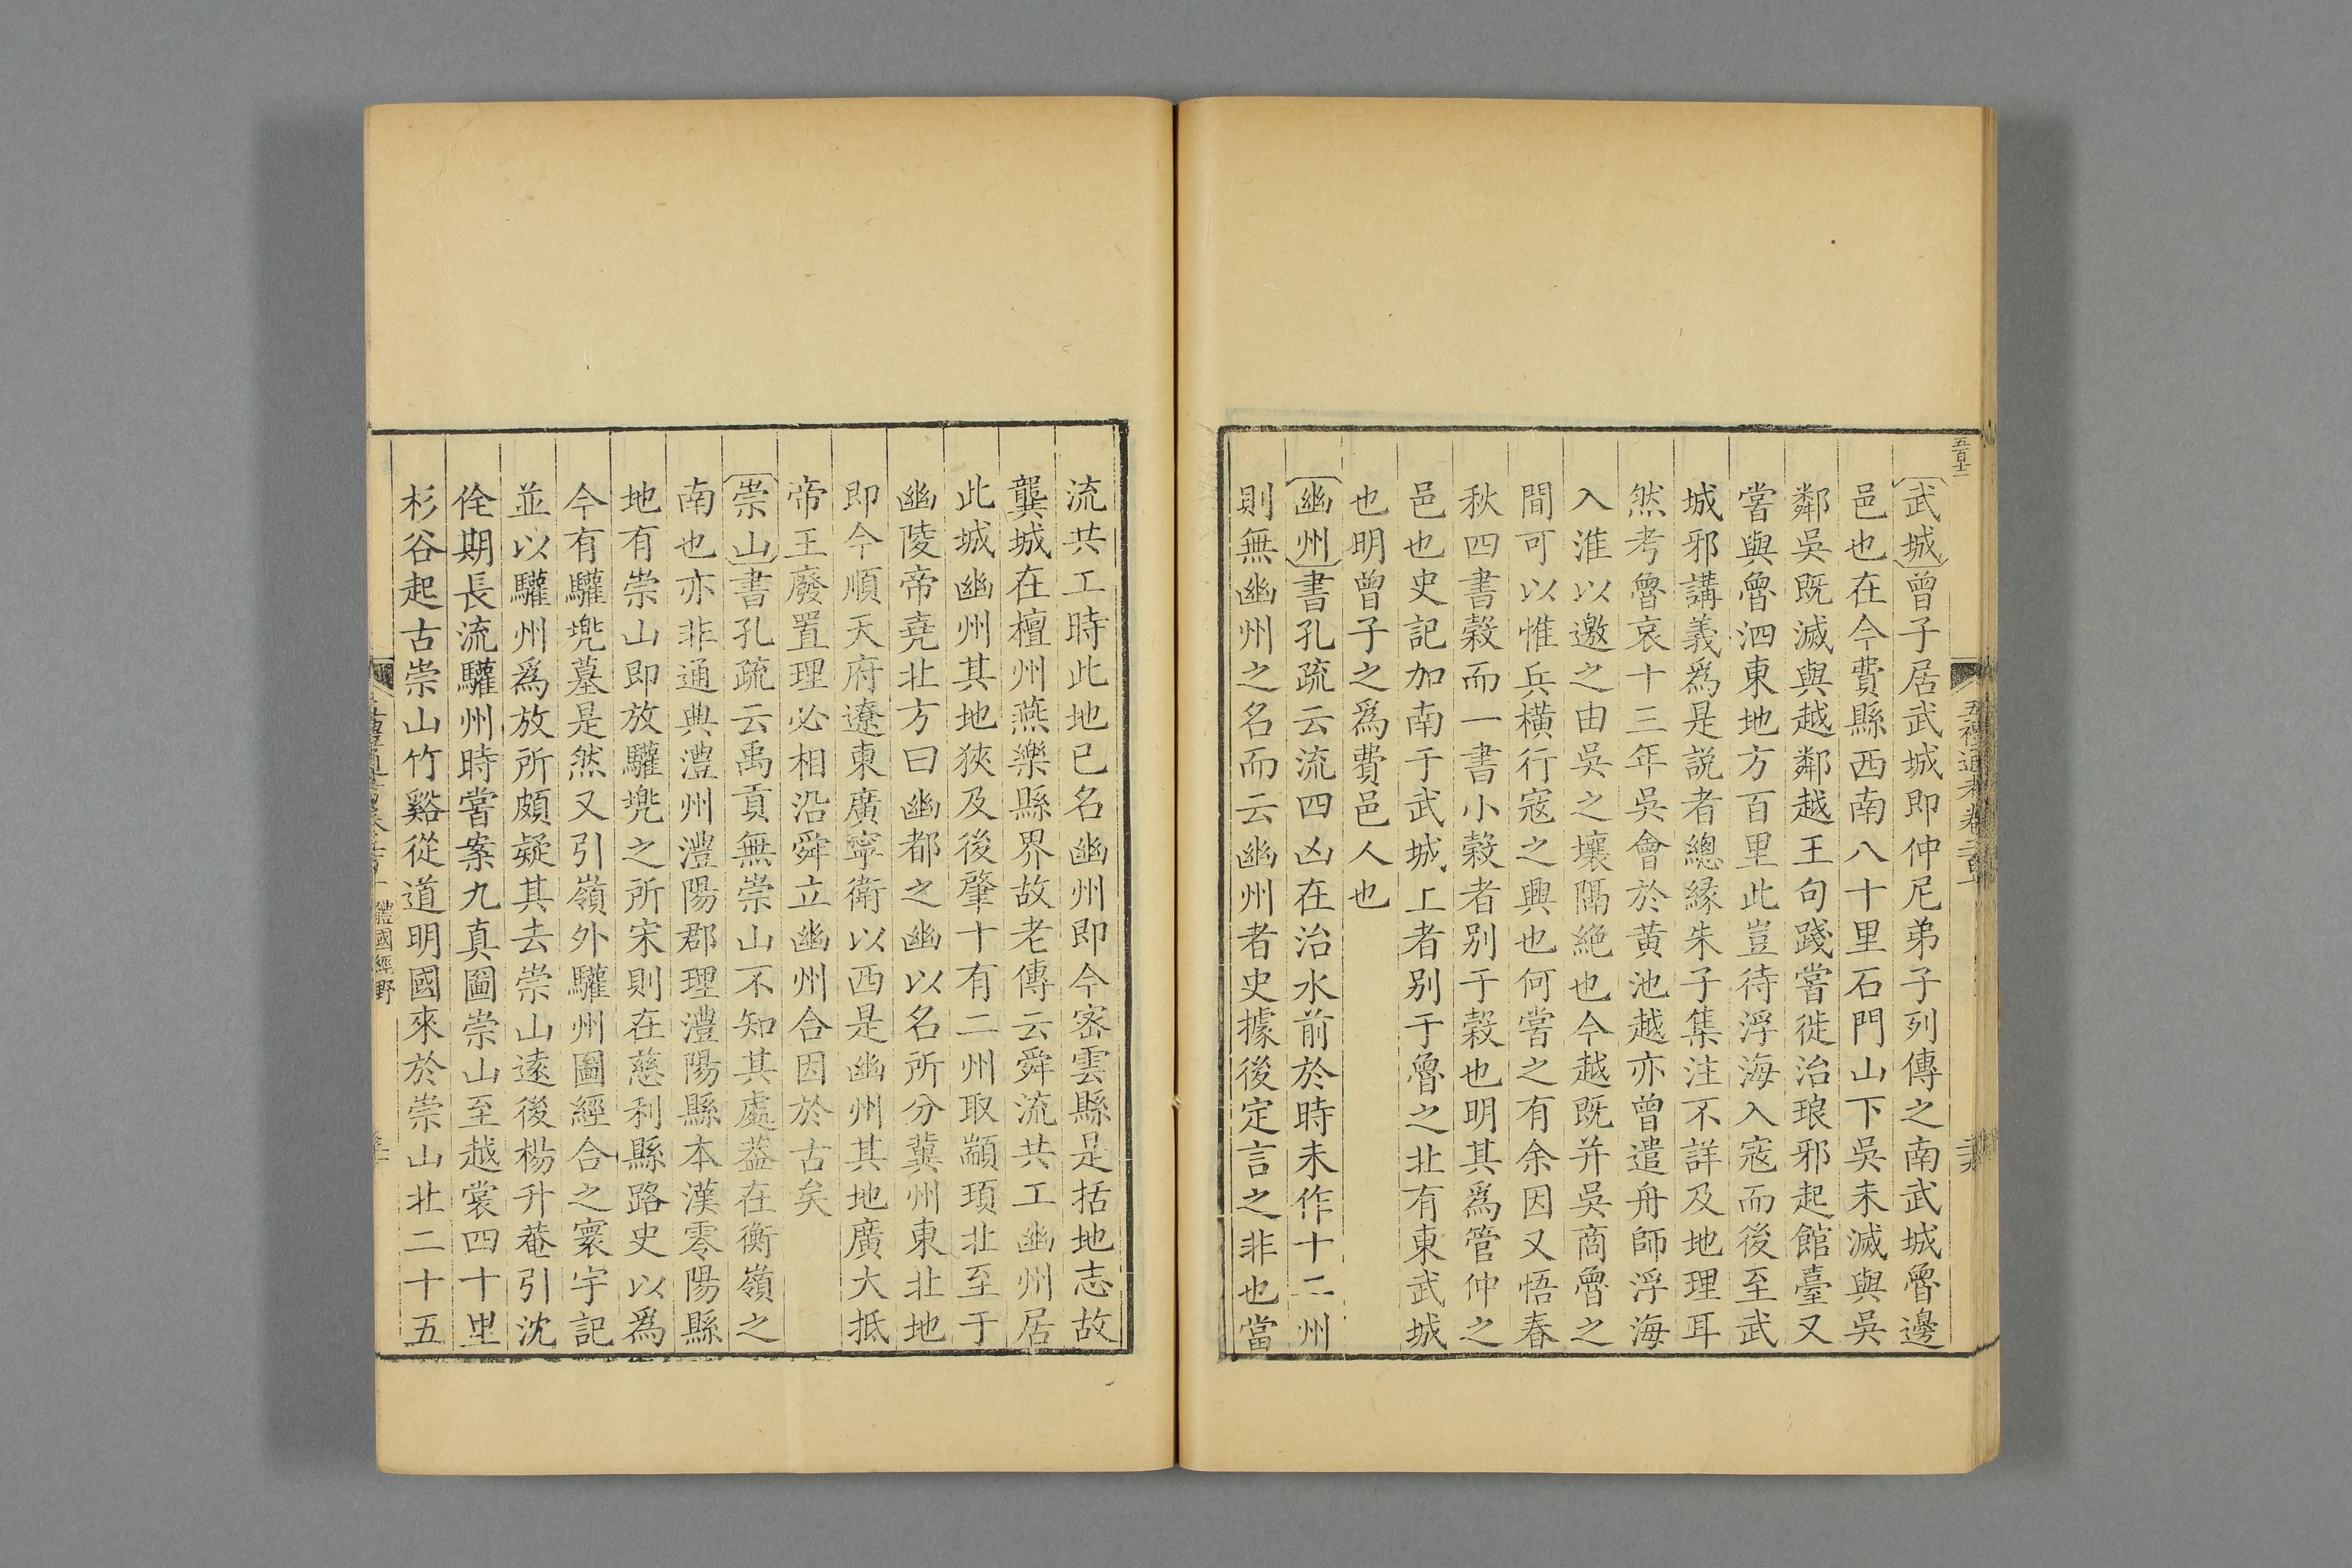 武城曾子居武城即仲尼弟子列傳之南武城魯邊
邑也在今費縣西南八十里石門山下吳未滅與吳
鄰吳既滅與越鄰越王句踐嘗徙治琅邪起館臺又
嘗與魯泗東地方百里此豈待浮海入寇而後至武
城邪講義爲是説者總緣朱子集注不詳及地理耳
然考魯哀十三年吳會於黄池越亦曾遣舟師浮海
入淮以邀之由吳之壤隔絶也今越既并吳商魯之
間可以惟兵橫行寇之興也何嘗之有余因又悟春
秋四書穀而一書小穀者别于穀也明其爲管仲之
邑也史記加南于武城上者别于魯之北有東武城
也明曾子之爲費邑人也
幽州書孔疏云流四凶在治水前於時未作十二州
則無幽州之名而云幽州者史據後定言之非也當
流共工時此地已名幽州即今密雲縣是括地志故
龔城在檀州燕樂縣界故老傳云舜流共工幽州居
此城幽州其地狹及後肇十有二州取顓頊北至于
幽陵帝堯北方曰幽都之幽以名所分冀州東北地
即今順天府遼東廣寧衛以西是幽州其地廣大抵
帝王廢置理必相沿舜立幽州合因於古矣
崇山書孔疏云禹貢無崇山不知其處葢在衡嶺之
南也亦非通典澧州澧陽郡理澧陽縣本漢零陽縣
地有崇山即放驩兠之所宋則在慈利縣路史以爲
今有驩兠墓是然又引嶺外驩州圖經合之寰宇記
並以驩州爲放所頗疑其去崇山遠後楊升菴引沈
佺期長流驩州時嘗案九真圖崇山至越裳四十里
杉谷起古崇山竹谿從道明國來於崇山北二十五
體國經野